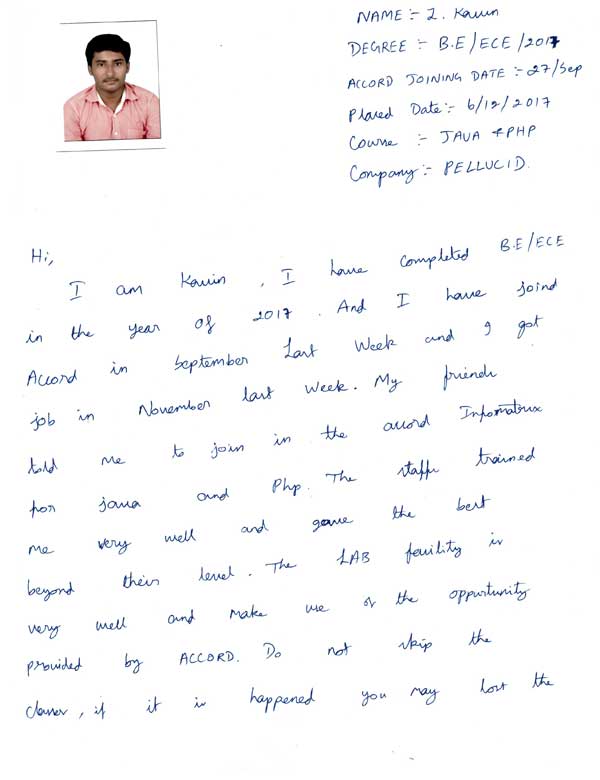 NAME :- I. Kavin
DEGREE :- B.E/ECE/2017
ACCORD JOINING DATE :- 27/Sep
Placed Date :- 6/12/2017
Course :- JAVA & PHP
Company :- PELLUCID.
Hi,
I am Kavin, I have completed B.E/ECE
in the year of 2017. And I have joind
Accord in September Last Week and I got
job in November last week. My friends
told me to join in the accord Infomatrix
for java and Php. The staffs trained
me very well and gave the best
beyond theis level. The LAB facility is
very well and make use of the opportunity
provided by ACCORD. Do not skip the
classes, if it is happened you may lost the